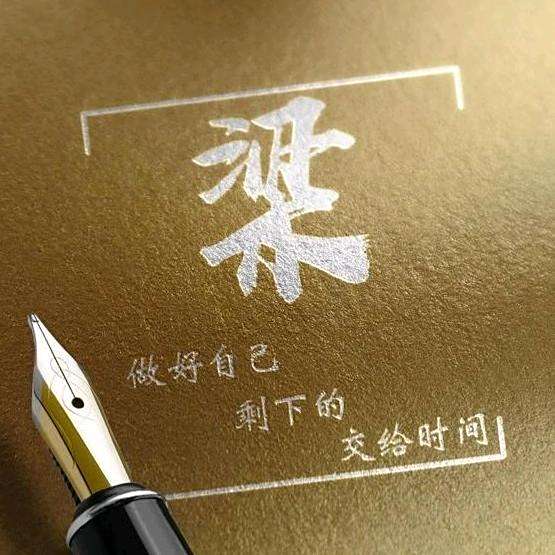 梁
做好自己
剩下的
交给时间